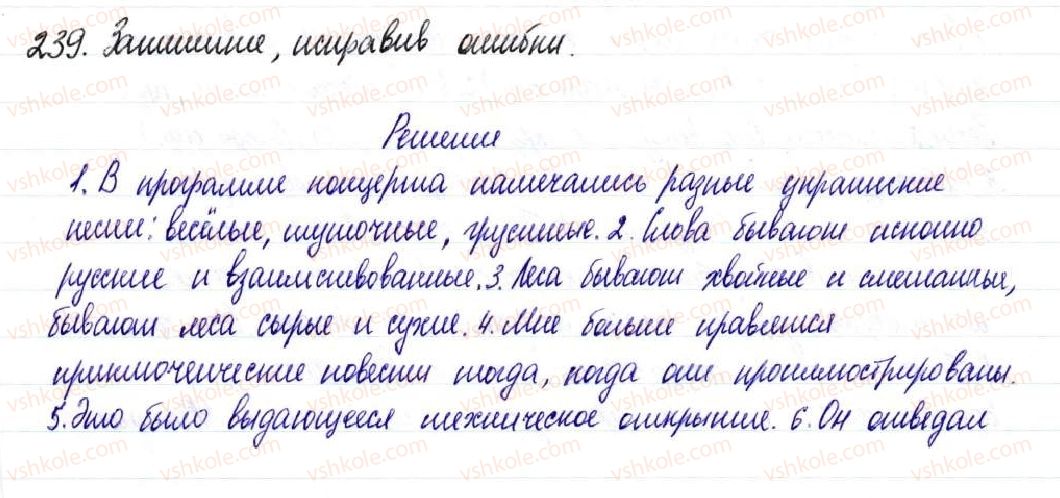 239. Запишите, исправив ошибки.
Решение
1. В программе концерта намечались разные украинские
песни: весёлые, шуточные, грустные. 2. Слова бывают исконно
русские и взаимствованные. 3. Леса бывают хвойные и смешанные,
бывают леса сырые и сухие. 4. Мне больше нравятся
приключенческие повести тогда, когда они проиллюстрированы.
5. Это было выдающееся техническое открытие. 6. Он отведал